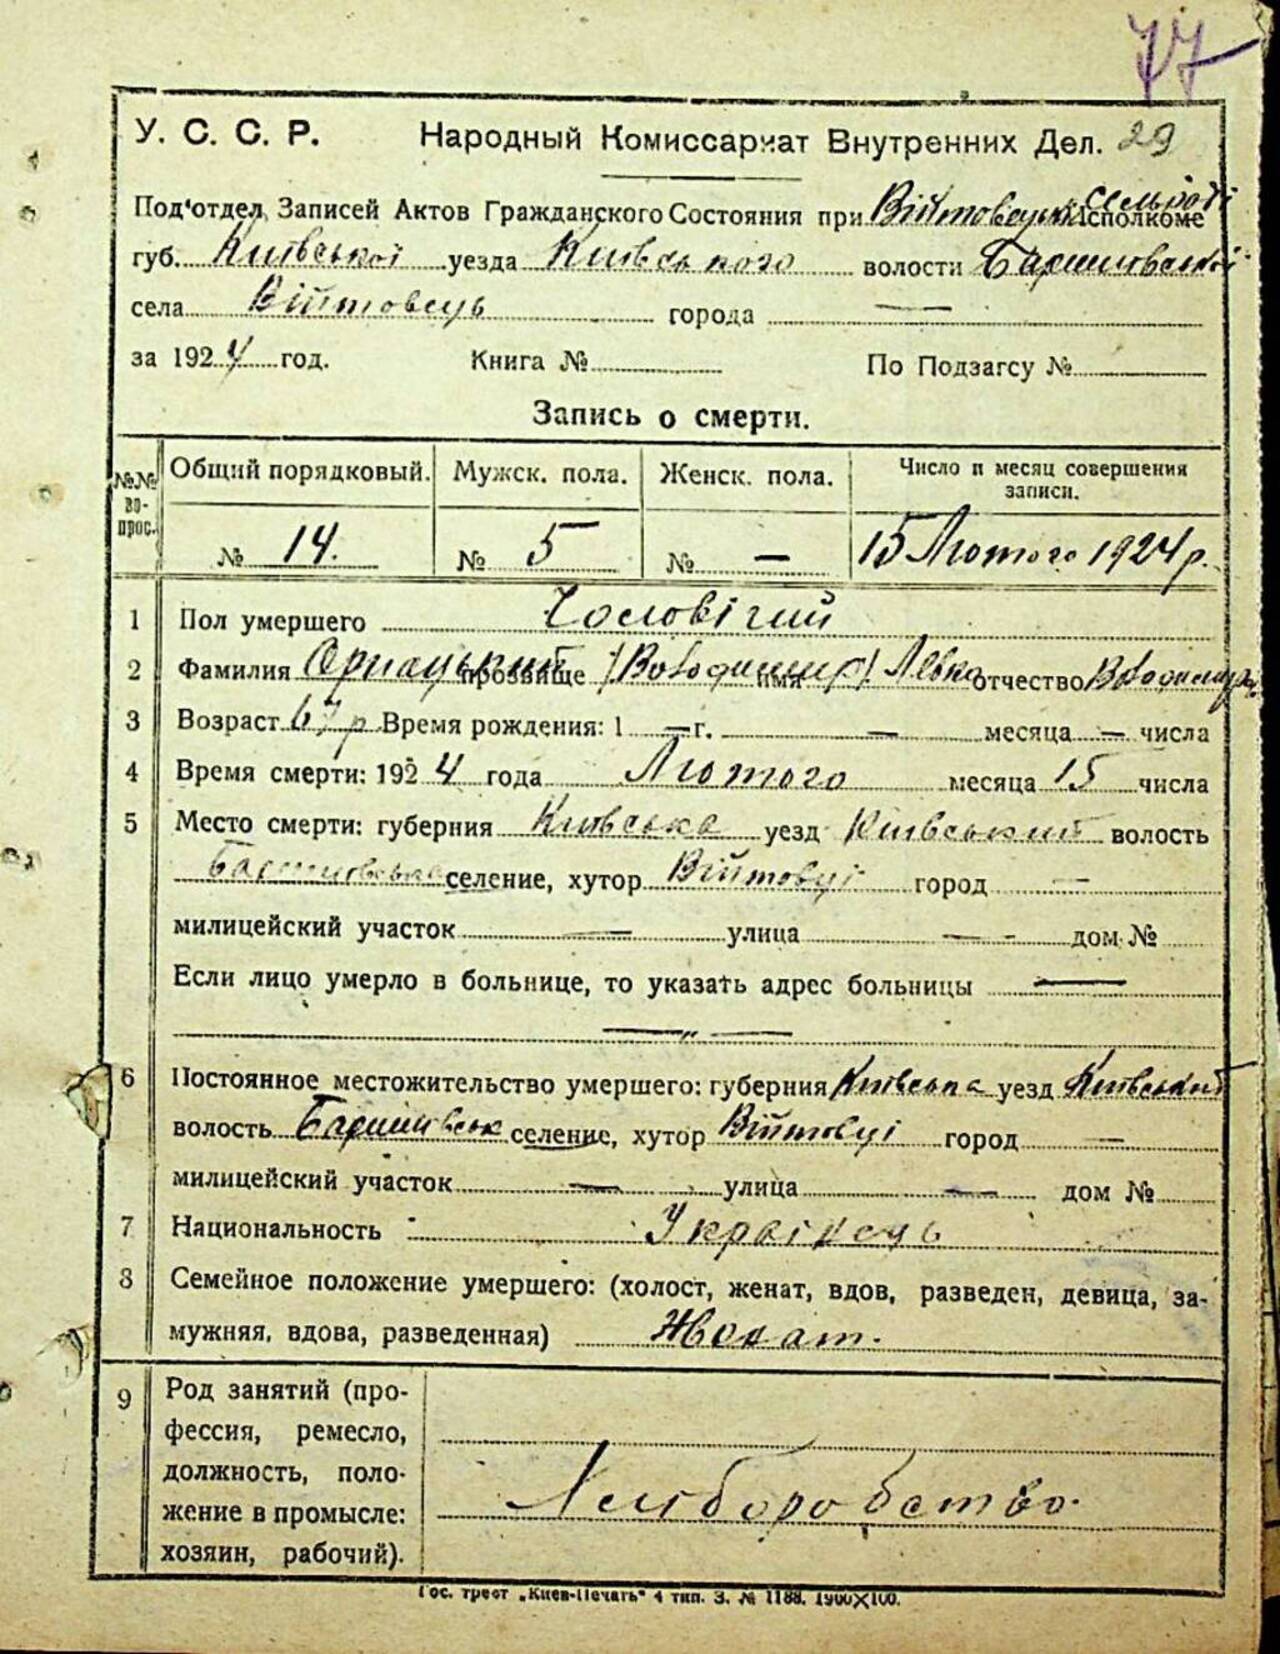 77
У. С. С. Р. Народный Комиссариат Внутренних Дел. 29
Под'отдел Записей Актов Гражданского Состояния при Війтовецьк. сельраді Исполкоме
губ. Київської уезда Київського волости Баришівської
села Війтовець города —
за 1924 год. Книга № По Подзагсу №
Запись о смерти.
№№ вопрос. Общий порядковый. Мужск. пола. Женск. пола. Число и месяц совершения записи.
№ 14. № 5 № — 15 Лютого 1924 р.
1 Пол умершего Чоловічий
2 Фамилия прозвище /Володимир/ имя Левко отчество Володимир.
3 Возраст 67 р Время рождения: 1 — г. — месяца — числа
4 Время смерти: 1924 года Лютого месяца 15 числа
5 Место смерти: губерния Київська уезд Київський волость
Баришівська селение, хутор Війтовці город —
милицейский участок — улица — дом №
Если лицо умерло в больнице, то указать адрес больницы —
— „ —
6 Постоянное местожительство умершего: губерния Київська уезд Київський
волость Баришівськ селение, хутор Війтовці город —
милицейский участок — улица — дом №
7 Национальность Українець
8 Семейное положение умершего: (холост, женат, вдов, разведен, девица, за-
мужняя, вдова, разведенная) Жонат.
9 Род занятий (про-
фессия, ремесло,
должность, поло-
жение в промысле:
хозяин, рабочий).
Хліборобство.
Гос. трест „Киев-Печать" 4 тип. З. № 1188. 1900X100.